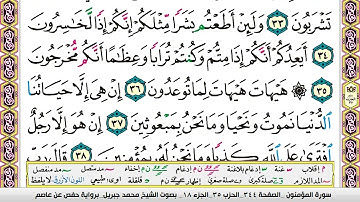 تَشْرَبُونَ ٣٣ وَلَئِنْ أَطَعْتُم بَشَرًا مِّثْلَكُمْ إِنَّكُمْ إِذًا لَّخَٰسِرُونَ
٣٤ أَيَعِدُكُمْ أَنَّكُمْ إِذَا مِتُّمْ وَكُنتُمْ تُرَابًا وَعِظَٰمًا أَنَّكُم مُّخْرَجُونَ
٣٥ هَيْهَاتَ هَيْهَاتَ لِمَا تُوعَدُونَ ٣٦ إِنْ هِيَ إِلَّا حَيَاتُنَا
ٱلدُّنْيَا نَمُوتُ وَنَحْيَا وَمَا نَحْنُ بِمَبْعُوثِينَ ٣٧ إِنْ هُوَ إِلَّا رَجُلٌ
ٱفْتَرَىٰ عَلَى ٱللَّهِ كَذِبًا وَمَا نَحْنُ لَهُۥ بِمُؤْمِنِينَ ٣٨ قَالَ رَبِّ
سورة المؤمنون الصفحة ٣٤٤ الحزب ٣٥ الجزء ١٨ بصوت الشيخ محمد جبريل برواية حفص عن عاصم